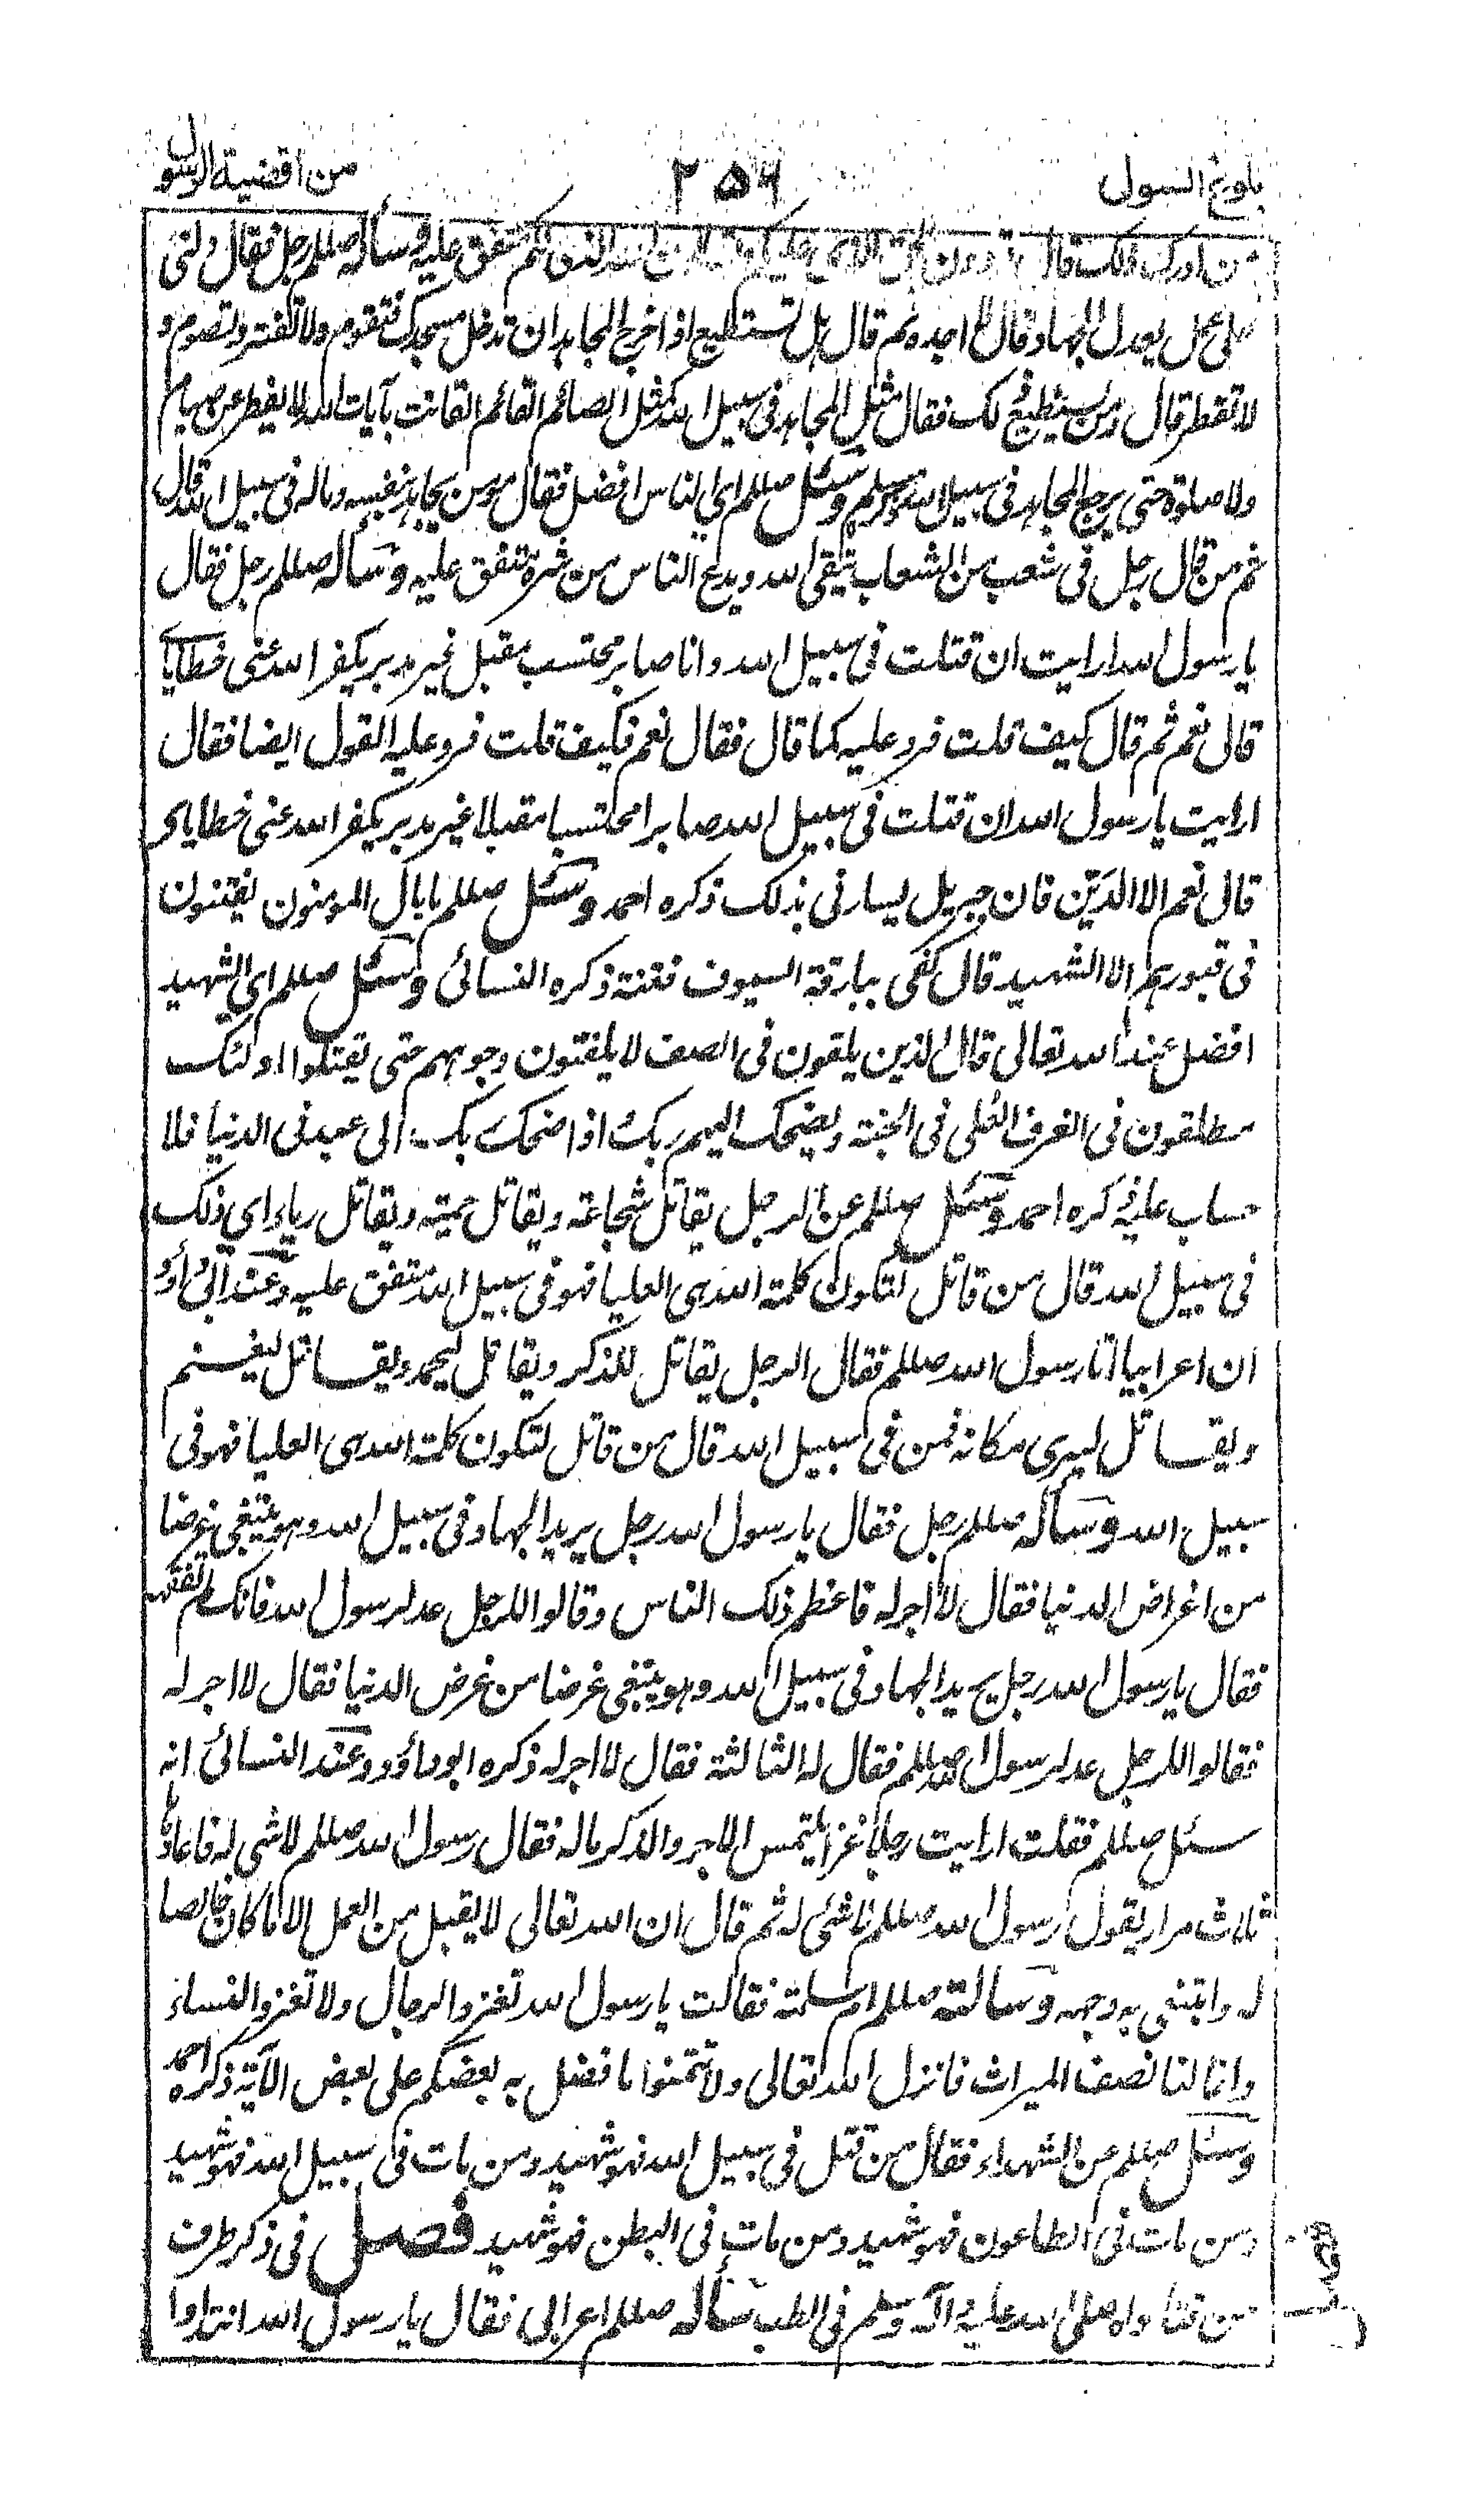 بلوغ السول ٢٥٦ من اقضية الرسول
من ادرك ذلك قال تؤدون الحق الذي عليكم وتسألون الله الذي لكم متفق عليه وسأله صللم رجل فقال دلني
على عمل يعدل الجهاد قال لا اجده ثم قال هل تستطيع اذا خرج المجاهد ان تدخل مسجدك فتقوم ولا تفتر وتصوم و
لا تفطر قال ومن يستطيع ذلك فقال مثل المجاهد في سبيل الله كمثل الصائم القائم القانت بآيات الله لا يفطر عن صيام
ولا صلوة حتى يرجع المجاهد في سبيل الله وسئل صللم اي الناس افضل فقال مومن يجاهد بنفسه وماله في سبيل الله قال
ثم من قال رجل في شعب من الشعاب يتقى الله ويدع الناس من شره متفق عليه وسأله صللم رجل فقال
يا رسول الله ارايت ان قتلت في سبيل الله وانا صابر محتسب مقبل غير مدبر يكفر الله عنى خطاياي
قال نعم ثم قال كيف قلت فرد عليه كما قال فقال نعم فكيف قلت فرد عليه القول ايضا فقال
ارايت يا رسول الله ان قتلت في سبيل الله صابرا محتسبا مقبلا غير مدبر يكفر الله عنى خطاياى
قال نعم الا الدَين فان جبريل يسارنى بذلك ذكره احمد وسئل صللم ما بال المومنون يفتنون
في قبورهم الا الشهيد قال كفى ببارقة السيوف فتنة ذكره النسائى وسئل صللم اي الشهيد
افضل عند الله تعالى قال الذين يلقون في الصف لا يلفتون وجوههم حتى يقتلوا اولئك
يتطلقون في الغرف العلى في الجنة ويضحك اليهم ربك اذا ضحك ربك الى عبد في الدنيا فلا
حساب عليه ذكره احمد وسئل صللم عن الرجل يقاتل شجاعة ويقاتل حمية ويقاتل رياء اي ذلك
في سبيل الله قال من قاتل لتكون كلمة الله هى العليا فهو في سبيل الله متفق عليه وعند ابى داؤد
ان اعرابيا اتا رسول الله صللم فقال الرجل يقاتل للذكر ويقاتل ليحمد ويقاتل ليغنم
ويقاتل ليرى مكانه فمن في سبيل الله قال من قاتل لتكون كلمة الله هى العليا فهو في
سبيل الله وسأله صللم رجل فقال يا رسول الله رجل يريد الجهاد في سبيل الله وهو يبتغى غرضا
من اغراض الدنيا فقال لا اجر له فاعظم ذلك الناس وقالوا للرجل عد لرسول الله فانك لم تفقهه
فقال يا رسول الله رجل يريد الجهاد في سبيل الله وهو يبتغى غرضا من غرض الدنيا فقال لا اجر له
فقالوا للرجل عد لرسول الله صللم فقال له الثالثة فقال لا اجر له ذكره ابو داؤد وعند النسائى انه
سئل صللم فقلت ارايت رجلا غزا يلتمس الاجر والذكر ماله فقال رسول الله صللم لا شى له فاعادها
ثلاث مرار يقول رسول الله صللم لا شئ له ثم قال ان الله تعالى لا يقبل من العمل الا ما كان خالصا
له وابتغى به وجهه وسألته صللم ام سلمة فقالت يا رسول الله تغزو الرجال ولا تغزو النساء
وانما لنا نصف الميراث فانزل الله تعالى ولا تتمنوا ما فضل به بعضكم على بعض الآية ذكره احمد
وسئل صللم عن الشهداء فقال من قتل في سبيل الله فهو شهيد ومن مات في سبيل الله فهو شهيد
ومن مات في الطاعون فهو شهيد ومن مات في البطن فهو شهيد فصل في ذكر طرف
من فتاواه صلى الله عليه وآله وسلم في الطب سأله صللم اعرابى فقال يا رسول الله انتداوا